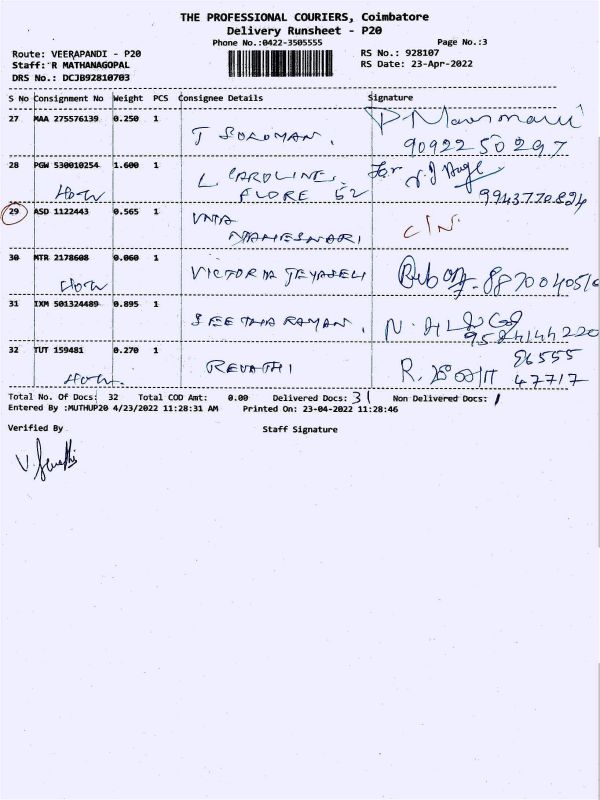 THE PROFESSIONAL COURIERS, Coimbatore
Delivery Runsheet - P20
Phone No.:0422-3505555 Page No.:3
Route: VEERAPANDI - P20 RS No.: 928107
Staff: R MATHANAGOPAL RS Date: 23-Apr-2022
DRS No.: DCJB92810703
S No Consignment No Weight PCS Consignee Details Signature
27 MAA 275576139 0.250 1
90922 50297
28 PGW 530010254 1.600 1 L CAROLINE. For
FLORE 52 9943770824
29 ASD 1122443 0.565 1 UMA C/N.
MAHESWARI
30 MTR 2178608 0.060 1 VICTORIA JEYASELI
31 IXM 501324489 0.895 1 SEETHARAMAN.
9524144220
32 TUT 159481 0.270 1 REVATHI R. 86555
47717
Total No. Of Docs: 32 Total COD Amt: 0.00 Delivered Docs: 31 Non Delivered Docs: 1
Entered By :MUTHUP20 4/23/2022 11:28:31 AM Printed On: 23-04-2022 11:28:46
Verified By Staff Signature